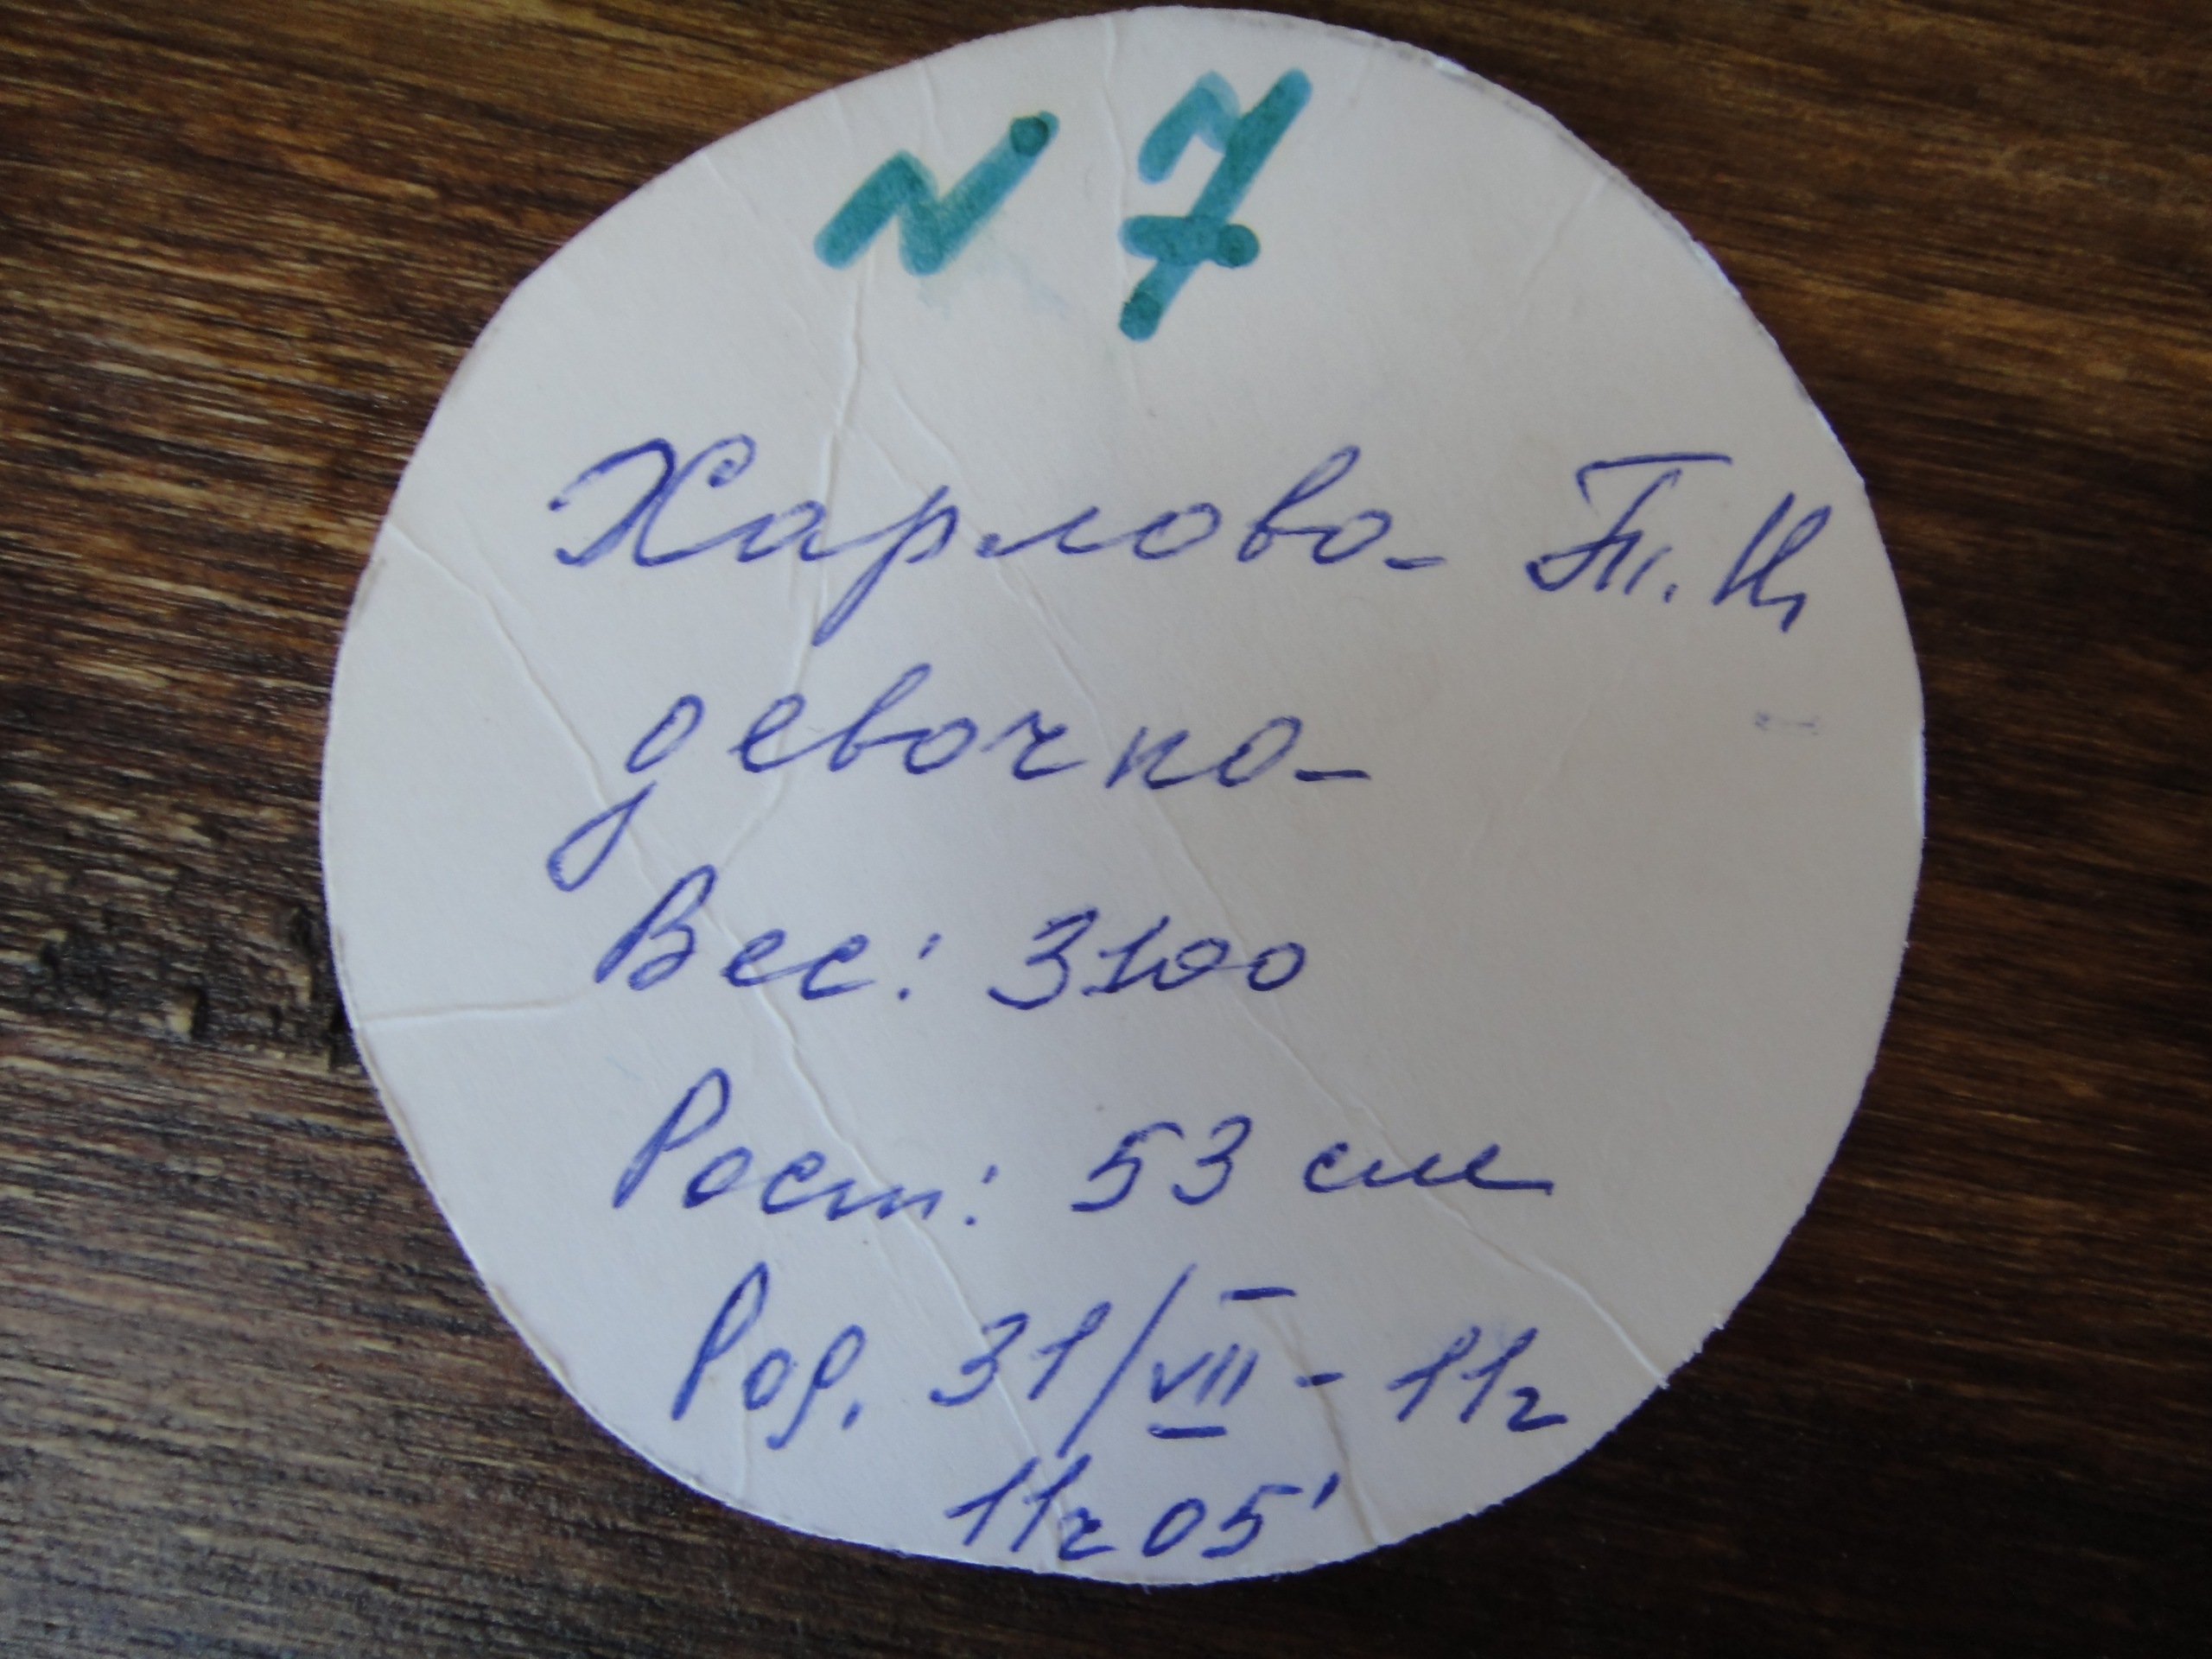 N 7
Харлова Т. Н.
девочка
Вес: 3100
Рост: 53 см
Род. 31/VII - 11г
11ч 05'